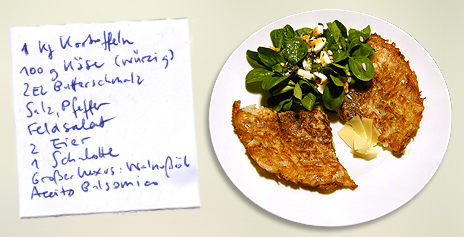 1 kg Kartoffeln
100 g Käse (würzig)
2 EL Butterschmalz
Salz, Pfeffer
Feldsalat
2 Eier
1 Schalotte
Großer Luxus: Walnußöl
Aceto Balsamico